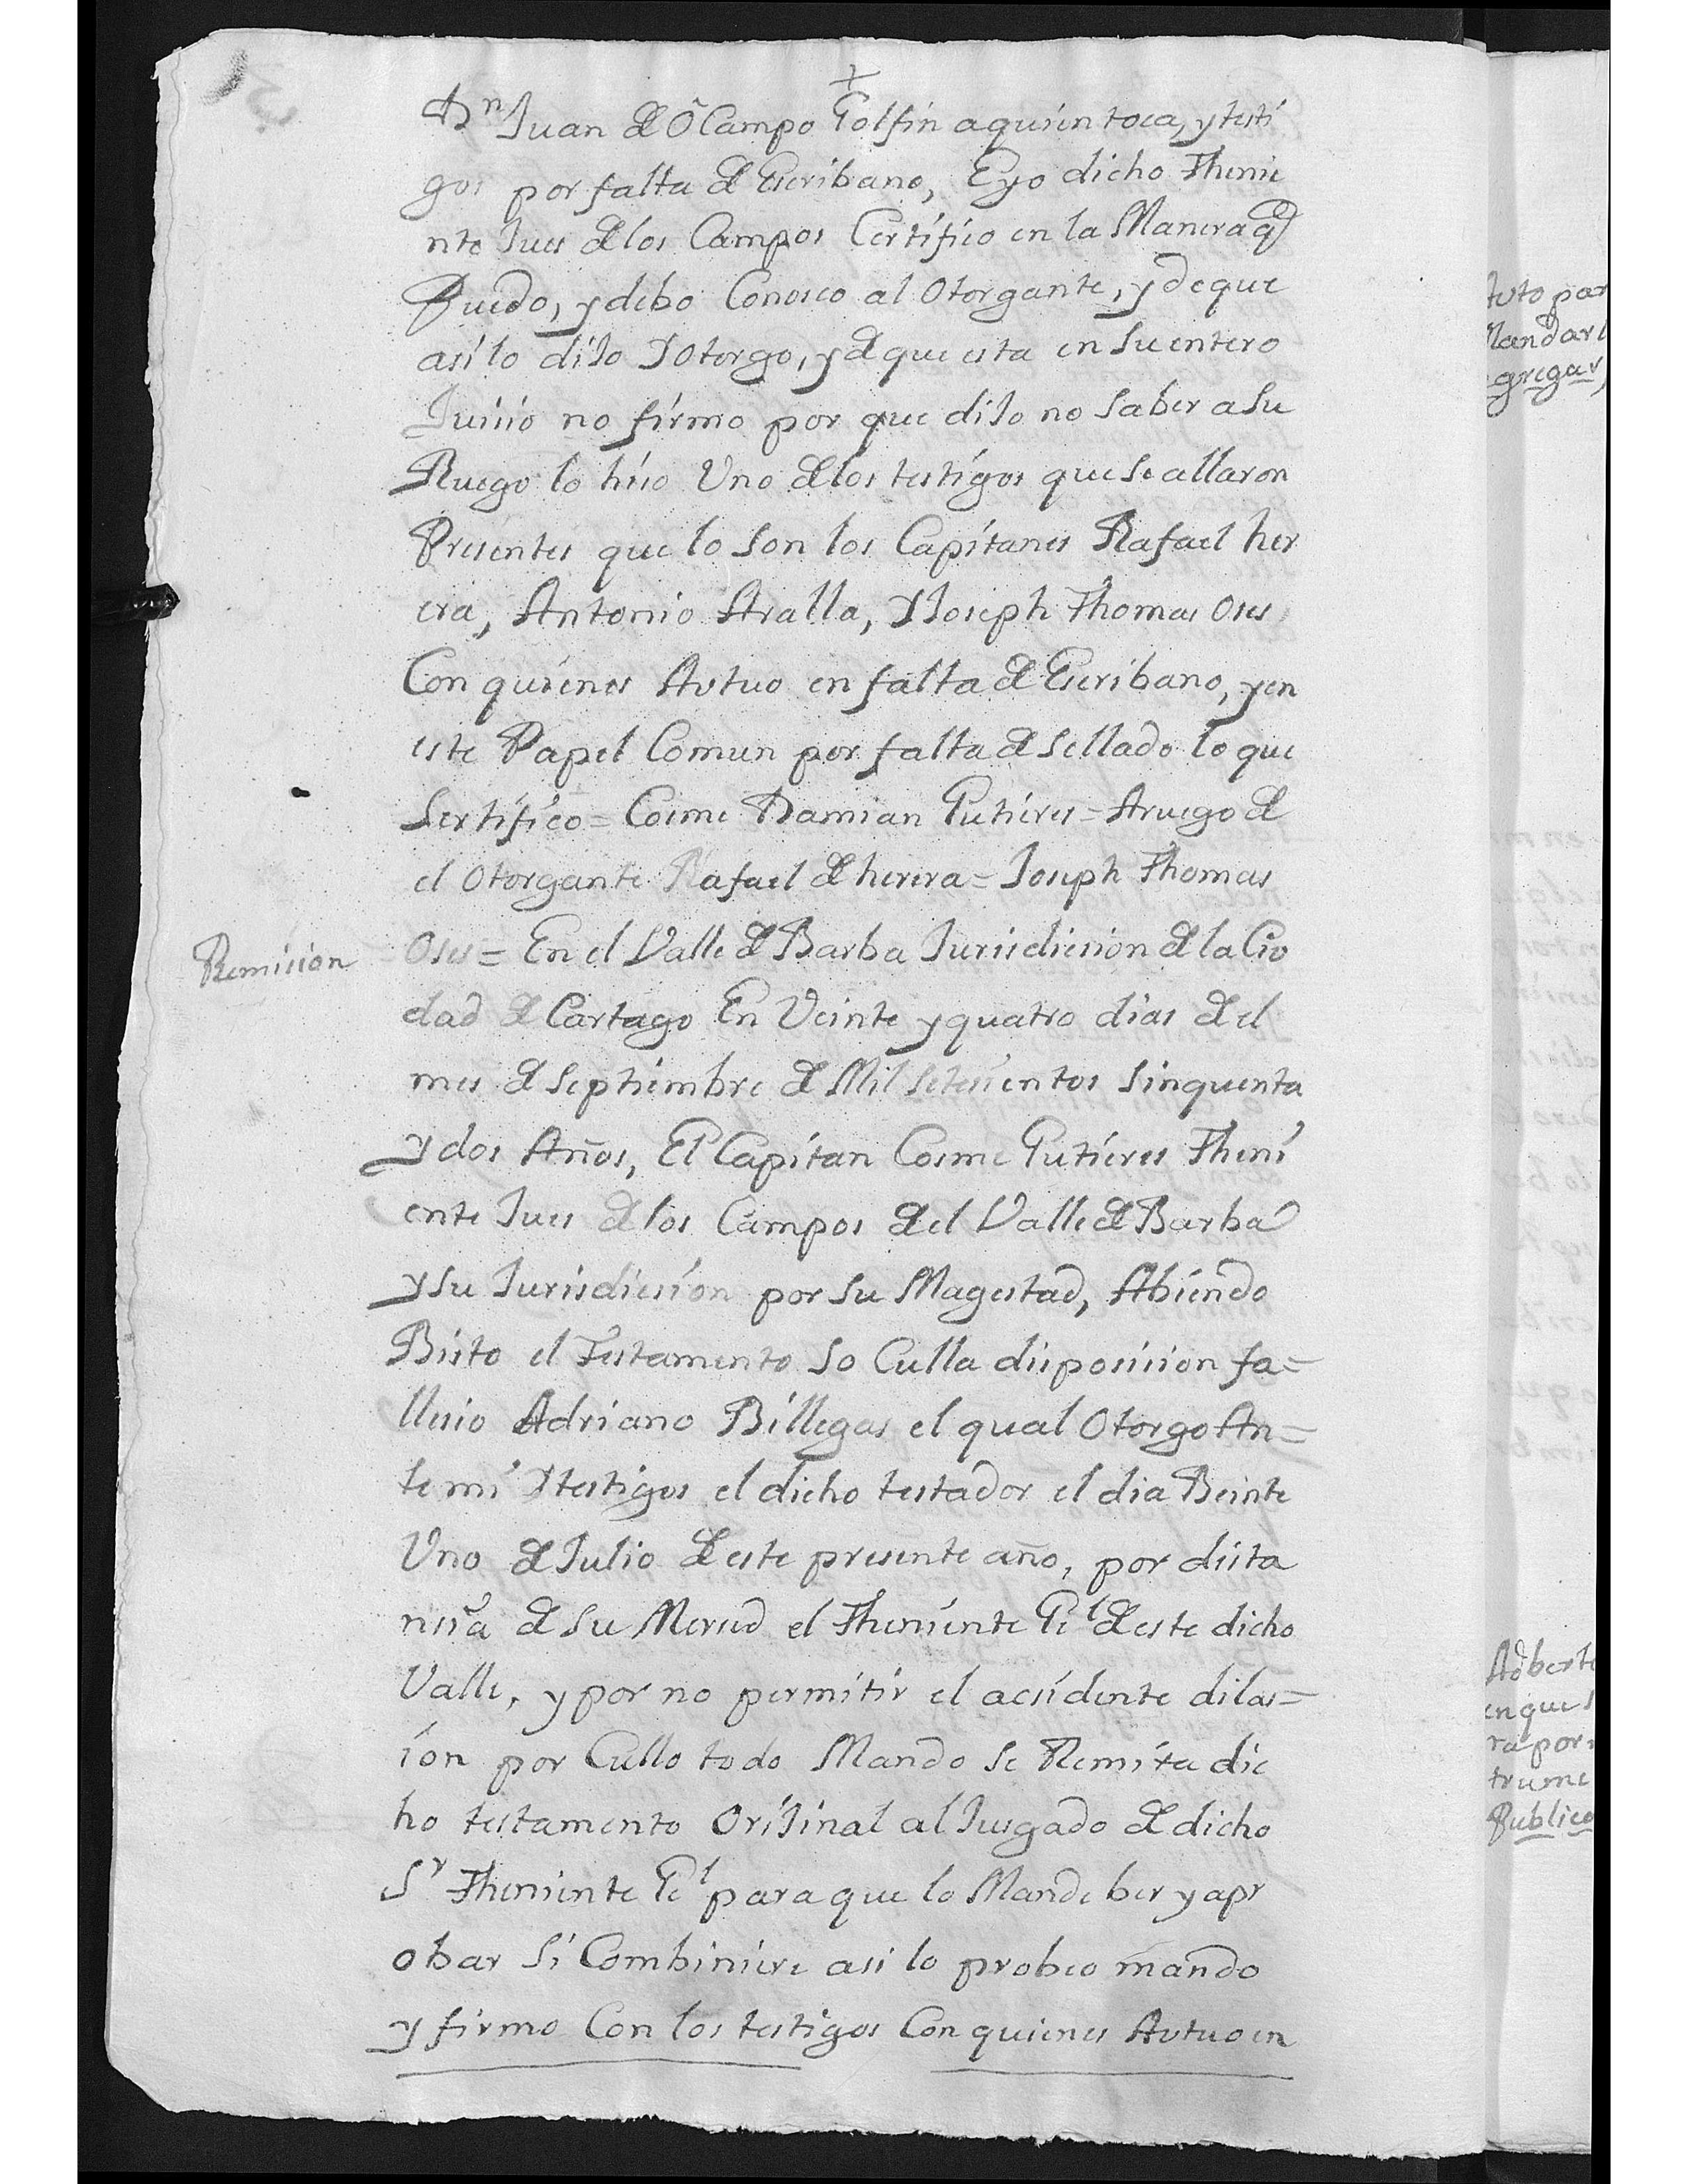 +
Dn Juan de Ocampo Golfin aquien toca, y testi
gos por falta de Escribano, E yo dicho Thenie
nte Jues de los Campos Certifico en la Manera q
Puedo, y debo Conosco al Otorgante, y de que
asi lo diJo Y Otorgo, y de que esta en Su entero
Juisio no firmo por que diJo no Saber a Su
Ruego lo hiso Uno de los testigos que Se allaron
Presentes que lo Son los Capitanes Rafael her
era, Antonio Aralla, Y Joseph Thomas Oses
Con quienes Autuo en falta de Escribano, y en
este Papel Comun por falta de Sellado lo que
Sertifico = Cosme Damian Gutieres = Aruego de
el Otorgante Rafael de herera = Joseph Thomas
Remision
Oses = En el Valle de Barba Jurisdicsion de la Ciu
dad de Cartago En Veinte y quatro dias de el
mes de Septiembre de Mil Setesientos Sinquenta
y dos Años, El Capitan Cosme Gutieres Theni
ente Jues de los Campos de el Valle de Barba
y Su Jurisdicsion por Su Magestad, Abiendo
Bisto el Testamento So Culla disposision fa=
llesio Adriano Billegas el qual Otorgo An=
te mi Y testigos el dicho testador el dia Beinte
Uno de Julio de este presente año, por dista
nsia de Su Mersed el Theniente Gel de este dicho
Valle, y por no permitir el acsidente dilas=
ion por Cullo todo Mando Se Remita dic
ho testamento OriJinal al Jusgado de dicho
Sr Theniente Gel para que lo Mande ber y apr
obar Si Combiniere asi lo probeo mando
y firmo Con los testigos Con quienes Autuo en
Auto par
Mandar
agregar
Adberte
en que
ra por
trume
Publico